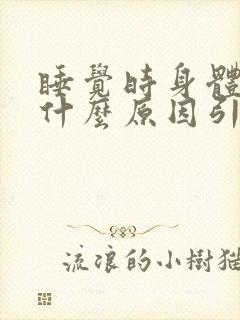 睡覺時身體
什麼原因引
流浪的小樹